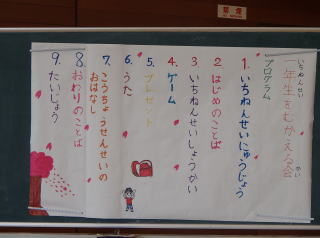 禁煙
一年生をむかえる会
いちねんせい
かい
プログラム
1. いちねんせいにゅうじょう
2 はじめのことば
3. いちねんせいしょうかい
4. ゲーム
5. プレゼント
6. うた
7. こうちょうせんせいの
おはなし
8. おわりのことば
9. たいじょう